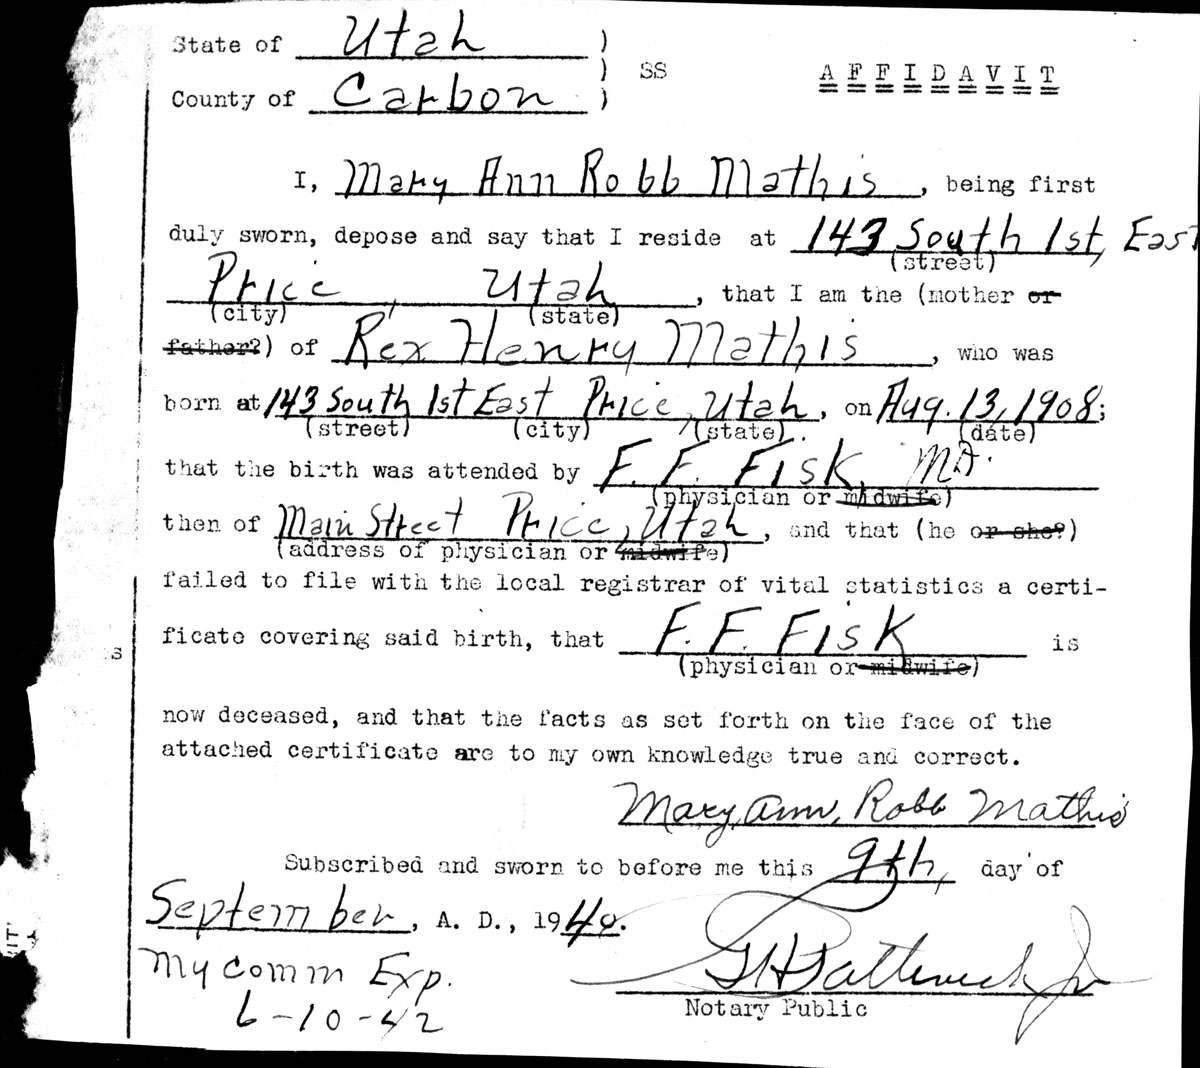 State of Utah )
) SS AFFIDAVIT
County of Carbon )
I, Mary Ann Robb Mathis, being first
duly sworn, depose and say that I reside at 143 South 1st, East
(street)
Price, Utah, that I am the (mother or
(city) (state)
father?) of Rex Henry Mathis, who was
born at 143 South 1st East Price, Utah, on Aug. 13, 1908;
(street) (city) (state). (date)
that the birth was attended by F. F. Fisk, M.D.
(physician or midwife)
then of Main Street Price, Utah, and that (he or she?)
(address of physician or midwife)
failed to file with the local registrar of vital statistics a certi-
ficate covering said birth, that F. F. Fisk is
(physician or midwife)
now deceased, and that the facts as set forth on the face of the
attached certificate are to my own knowledge true and correct.
Mary Ann Robb Mathis
Subscribed and sworn to before me this 9th, day of
September, A. D., 1940.
My Comm Exp.
6-10-42
Notary Public